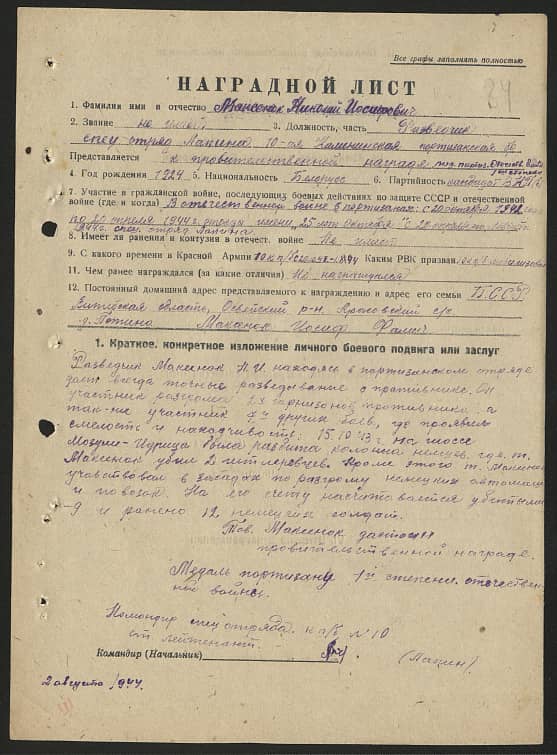 24
Все графы заполнять полностью
НАГРАДНОЙ ЛИСТ
1. Фамилия имя и отчество Максенок Николай Иосифович
2. Звание не имеет, 3. Должность, часть Разведчик
спец отряд Лапина 10-ая Калининская партизанская
Представляется к правительственной награде
4. Год рождения 1924 5. Национальность Белорус 6. Партийность кандидат
7. Участие в гражданской войне, последующих боевых действиях по защите СССР и отечественной
войне (где и когда) В отечественной войне в партизанах: с 20 октября 1942
по 20 апреля 1944г. имени 25 лет Октября с 20 апреля по
1944г. спец отряд Лапина
8. Имеет ли ранения и контузия в отечест. войне Не имеет
9. С какого времени в Красной Армии Каким РВК призван
11. Чем ранее награждался (за какие отличия) Не награждался
12. Постоянный домашний адрес представляемого к награждению и адрес его семьи БССР
Витебская область, Освейский р-н с/с
д. Максенок Иосиф
1. Краткое, конкретное изложение личного боевого подвига или заслуг
Разведчик Максенок Н.И. находясь в партизанском отряде
дает всегда точно разведывание о противнике. Он
участник разгрома гарнизонов противника, а
так-же участник других боев, где проявил
смелость и находчивость: 15.10.43 г. на шоссе
была разбита колонна немцев, где т.
Максенок убил 2 гитлеровцев. Кроме этого т. Максенок
участвовал в засадах по разгрому немецких автомашин
и повозок. На его счету насчитывается убитыми
-9 и ранено 12 немецких солдат.
Тов. Максенок достоин
правительственной награде.
Медаль партизану 1ой степени отечествен
ной войны.
Командир спец отряда N 10
ст. лейтенант.
Командир (Начальник) (Лапин)
2 августа 1944